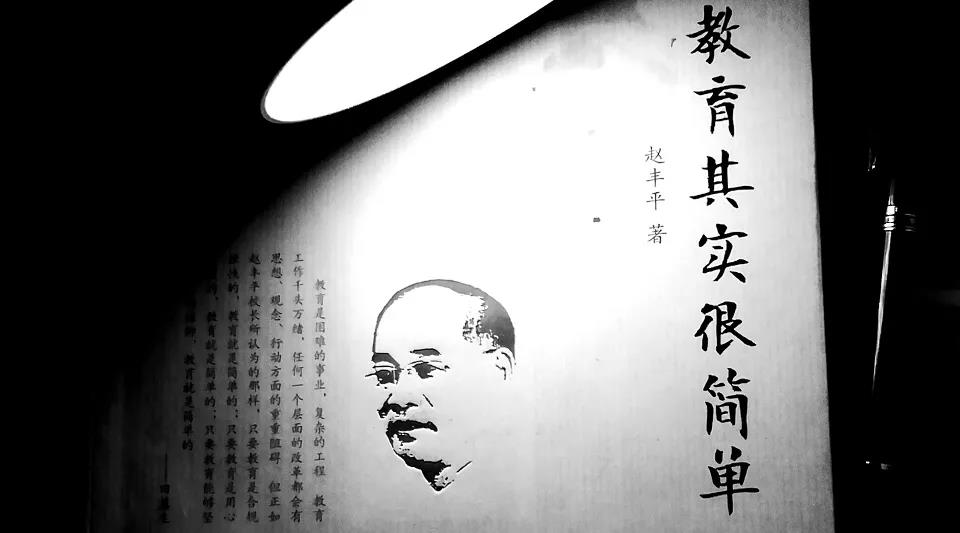 教育其实很简单
赵丰平 著
教育是困难的事业，复杂的工程 教育
工作千头万绪，任何一个层面的改革都会有
思想、观念、行动方面的重重阻碍 但正如
赵丰平校长所认为的那样，只要教育是合规
律性的，教育就是简单的；只要教育是用心
的，教育就是简单的；只要教育能够坚
教育就是简单的
——田慧生